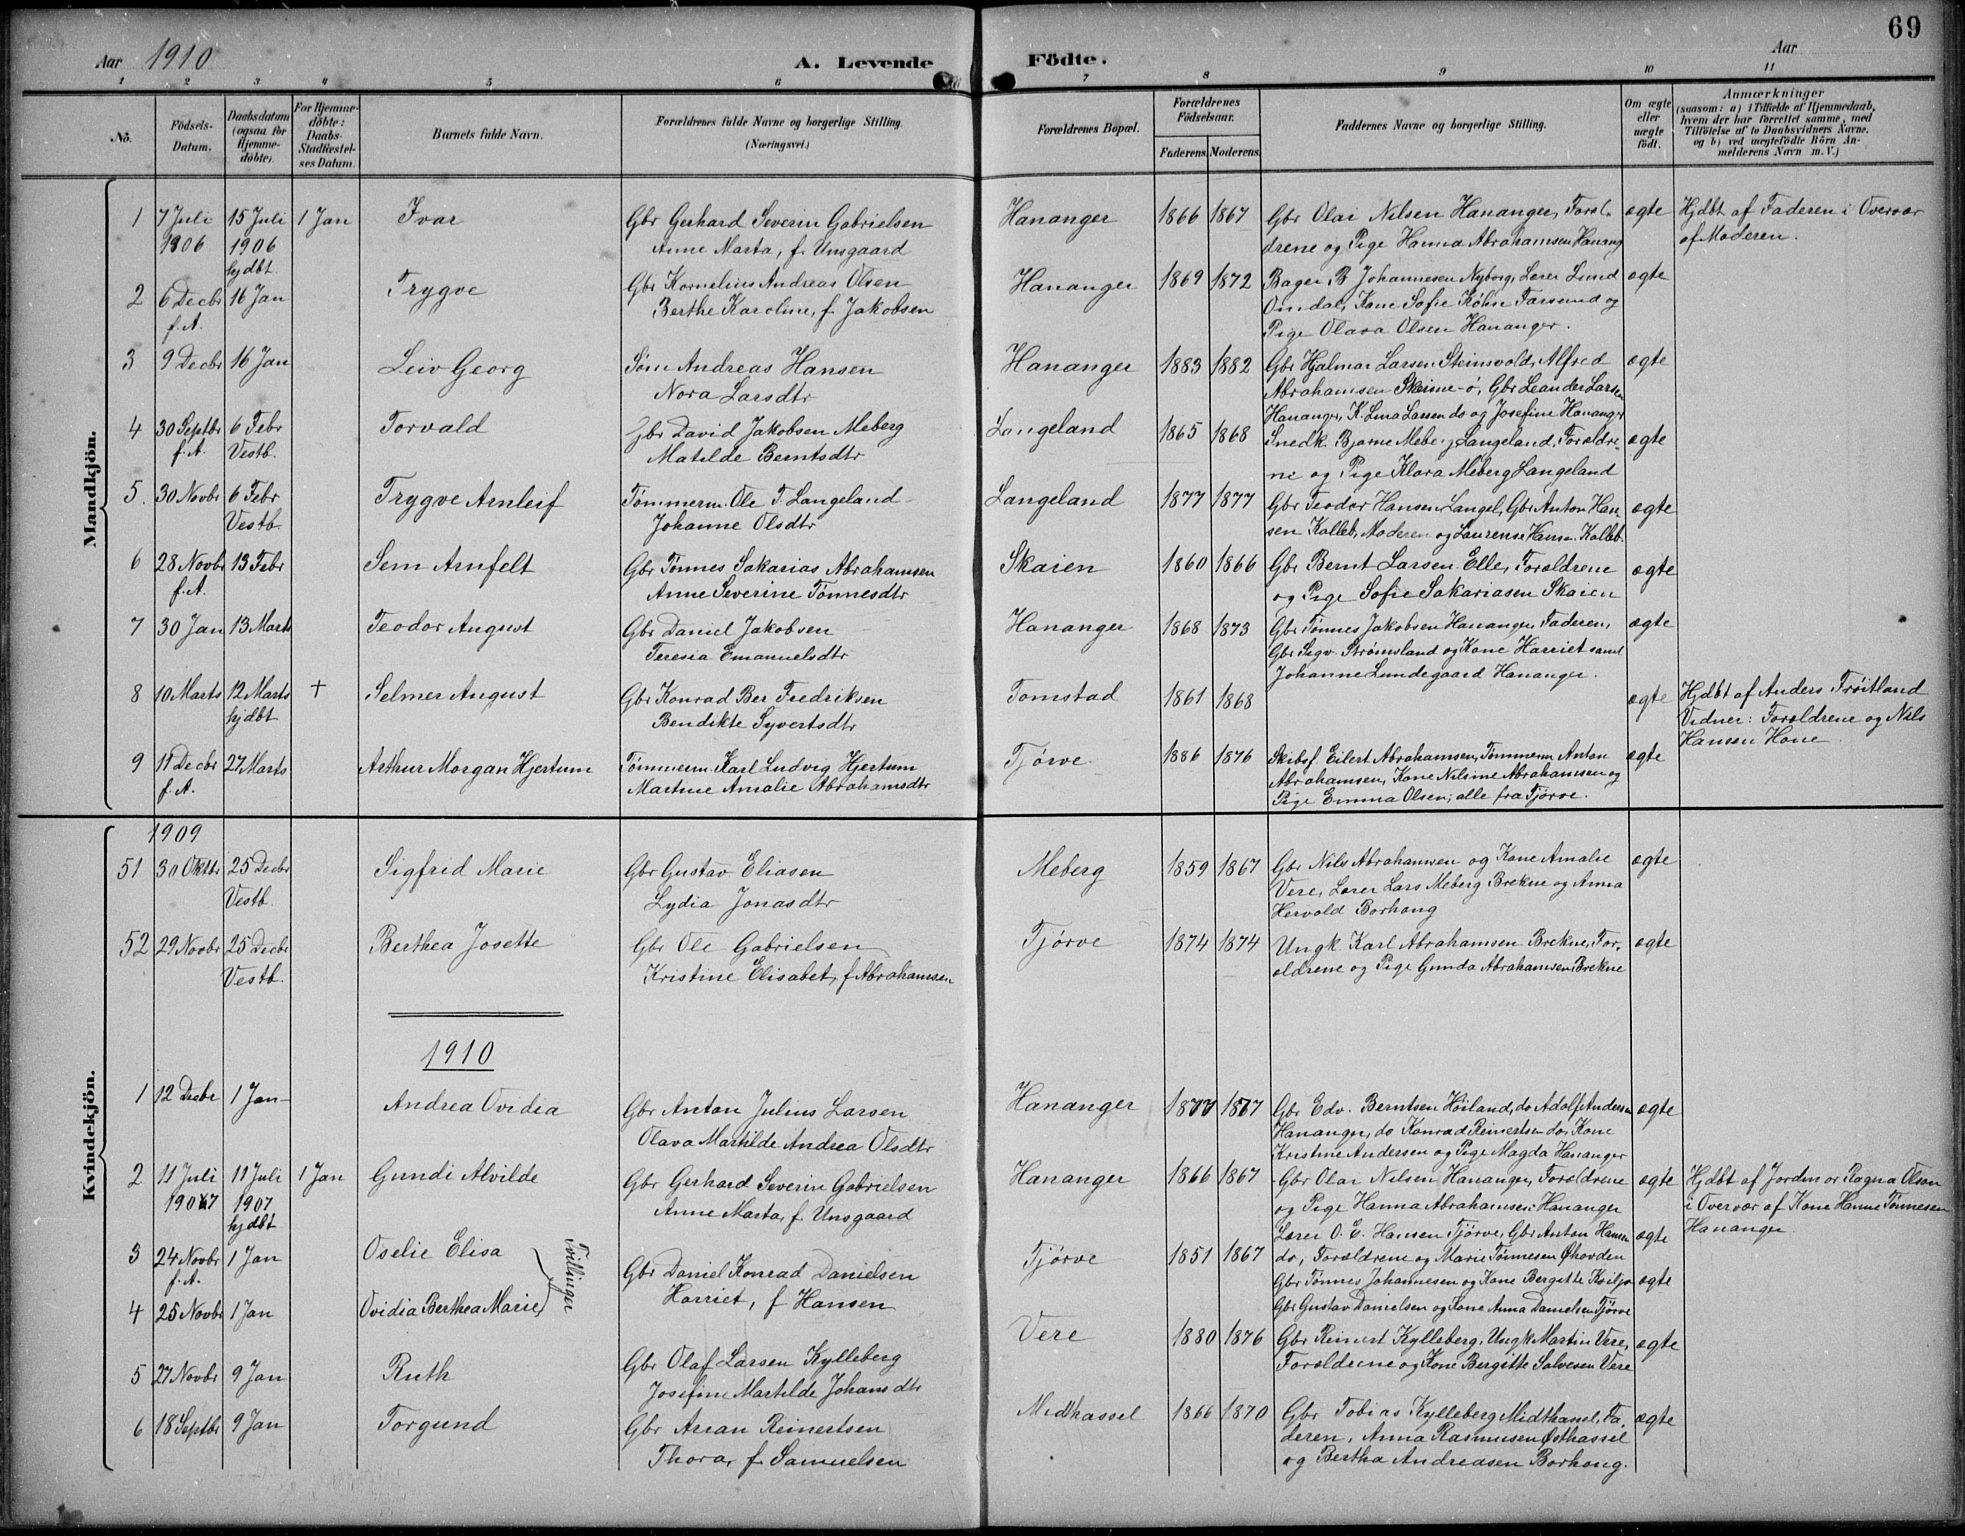 69
Aar 1910 A. Levende Födte. Aar
1 2 3 4 5 6 7 8 9 10 11
No. Födsels-Datum. Daabsdatum (ogsaa for Hjemmedöbte). For Hjemmedöbte: Daabs-Stadfæstelses Datum. Barnets fulde Navn. Forældrenes fulde Navne og borgerlige Stilling. (Næringsvei.) Forældrenes Bopæl. Forældrenes Födselsaar. Faderens. Moderens. Faddernes Navne og borgerlige Stilling. Om ægte eller uægte födt. Anmærkninger (saasom: a) i Tilfælde af Hjemmedaab, hvem der har forrettet samme, med Tilföielse af to Daabsvidners Navne. og b) ved uægtefödte Börn Anmelderens Navn m. V.)
Mandkjön.
1 7 Juli 15 Juli 1 Jan Ivar Gbr Gerhard Severin Gabrielsen Hananger 1866 1867 Gbr Olai Nilsen Hananger, Foræl- ægte Hjdbt af Faderen i Overvær
1906 1906 Anne Marta, f. Unsgaard drene og Pige Hanna Abrahamsen Hanang af Moderen.
hjdbt
2 6 Decbr 16 Jan Trygve Gbr Kornelius Andreas Olsen Hananger 1869 1872 Bager B Johannesen Nyborg, Lærer Lund ægte
f. A. Berthe Karoline, f. Jakobsen Omdal, Kone Sofie Köhn Farsund og
Pige Olava Olsen Hananger.
3 9 Decbr 16 Jan Leiv Georg Søm Andreas Hansen Hananger 1883 1882 Gbr Hjalmar Larsen Steinsvold, Alfred ægte
Nora Larsdtr Abrahamsen Skeime-ö, Gbr Leander Larsen
Hananger, K. Lina Larsen do og Josefine Hananger
4 30 Septbr 6 Febr Torvald Gbr David Jakobsen Meberg Langeland 1865 1868 Snedk. Bjarne Meberg Langeland, Forældre- ægte
f. A. Vestb. Matilde Berntsdtr ne og Pige Klara Meberg Langeland
5. 30 Novbr 6 Febr Trygve Arnleif Tømmerm. Ole T. Langeland Langeland 1877 1877 Gbr Teodor Hansen Langel, Gbr Anton Han- ægte
Vestb. Johanne Olsdtr sen Kalleb, Moderen og Laurense Hansn Kalleb.
6 28 Novbr 13 Febr Sem Arnfelt Gbr Tønnes Sakarias Abrahamsen Skaien 1860 1866 Gbr Bernt Larsen Elle, Forældrene ægte
f. A. Anne Severine Tønnesdtr og Pige Sofie Sakariasen Skaien
7 30 Jan 13 Marts Teodor August Gbr Daniel Jakobsen Hananger 1868 1873 Gbr Tønnes Jakobsen Hananger, Faderen, ægte
Teresia Emanuelsdtr Gbr Sigv. Strømsland og Kone Harriet samt
Johanne Lundegaard Hananger.
8 10 Marts 12 Marts † Selmer August Gbr Konrad Ber Fredriksen Tomstad 1861 1868 ægte Hjdbt af Anders Frøitland
hjdbt Bendikte Syvertsdtr Vidner: Forældrene og Nils
Hansen Hane
9 11 Decbr 27 Marts Arthur Morgan Hjertum Tømmerm. Karl Ludvig Hjertum Tjørve 1886 1876 Skibsf. Eilert Abrahamsen, Tömmerm Anton ægte
f. A. Martine Amalie Abrahamsdtr Abrahamsen, Kone Nilsine Abrahamsen og
Pige Emma Olsen, alle fra Tjørve.
Kvindekjön.
1909
51 30 Oktbr 25 Decbr Sigfrid Marie Gbr Gustav Eliasen Meberg 1859 1867 Gbr Nils Abrahamsen og Kone Amalie ægte
Vestb. Lydia Jonasdtr Vere, Lærer Lars Meberg Brekne og Anna
Hervold Borhaug
52 29 Novbr 25 Decbr Berthea Josette Gbr Ole Gabrielsen Tjørve 1874 1874 Ungk. Karl Abrahamsen Brekne, For- ægte
Vestb. Kristine Elisabet, f. Abrahamsen ældrene og Pige Gunda Abrahamsen, Brekne
1910
1 12 Decbr 1 Jan Andrea Ovidia Gbr Anton Julius Larsen Hananger 1877 1877 Gbr Edv. Berntsen Høiland, do Adolf Andersen ægte
Olava Martilde Andrea Olsdtr Hananger, do Konrad Reinertsen do, Kone
Kristine Andersen og Pige Magda Hananger
2 11 Juli 11 Juli 1 Jan Gundi Alvilde Gbr Gerhard Severin Gabrielsen Hananger 1866 1867 Gbr Olai Nilsen Hananger, Forældrene ægte Hjdbt af Jordmor Ragna Olsen
1907 1907 Anne Marta, f. Unsgaard og Pige Hanna Abrahamsen Hananger i Overvær af Kone Hanne Tönnesen
hjdbt Hananger
3 24 Novbr 1 Jan Oselie Elisa Tvillinger Gbr Daniel Konrad Danielsen Tjørve 1851 1867 Lærer O. E. Hansen Tjørve, Gbr Anton Hansen ægte
f. A. Harriet, f Hansen do, Forældrene og Marie Tönnesen Øhovden
4 25 Novbr 1 Jan Ovidia Berthea Marie Gbr Tønnes Johannesen og Kone Bergitte Kviljo ægte
Gbr Gustav Danielsen og Kone Anna Danielsen Tjörve
5 27 Novbr 9 Jan Ruth Gbr Olaf Larsen Kylleberg Vere 1880 1876 Gbr Reinert Kylleberg, Ungk Martin Vere, ægte
Josefine Martilde Johansdtr Forældrene og Kone Bergitte Salvesen Vere
6 18 Septbr 9 Jan Torgund Gbr Asran Reinertsen Midthassel 1866 1870 Gbr Tobias Kylleberg Midthassel, Fa- ægte
Thora, f Samuelsen deren, Anna Rasmusen Østhassel
og Bertha Andreasen Borhaug.